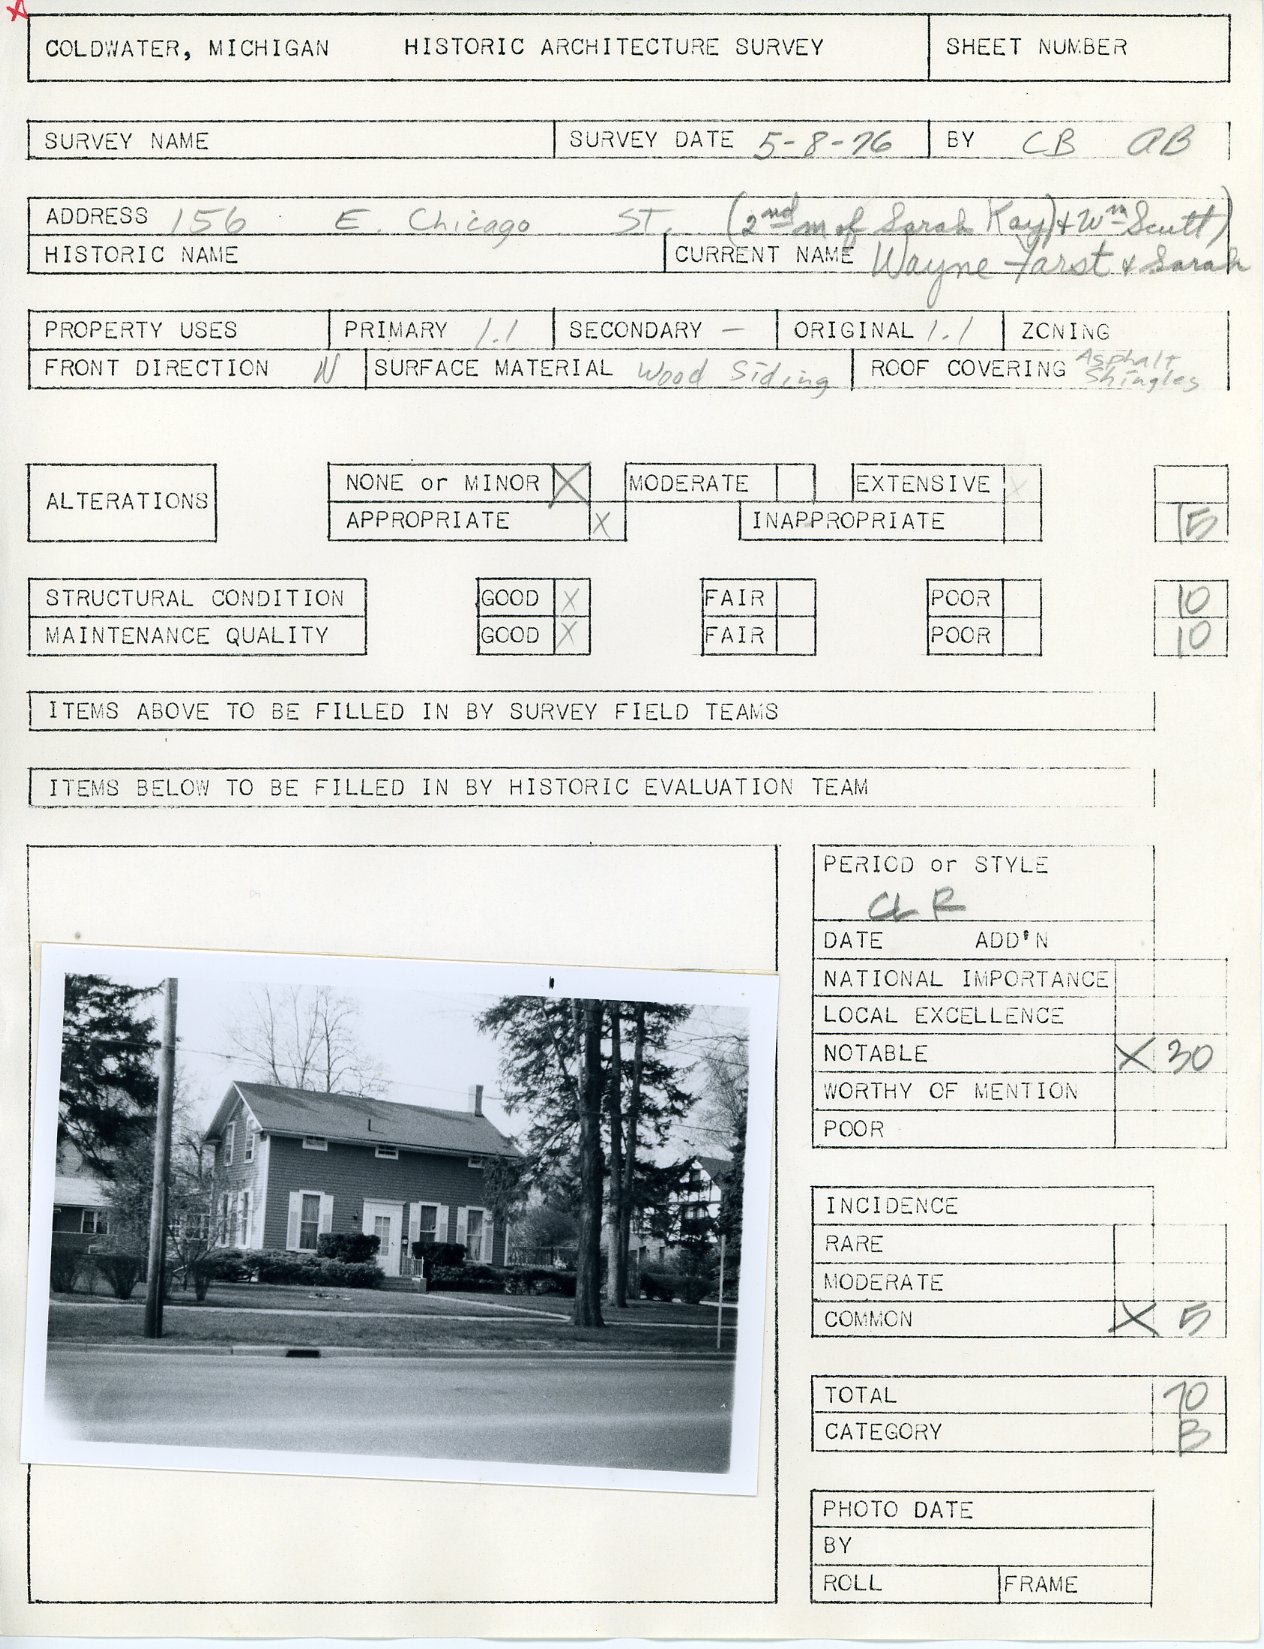 COLDWATER, MICHIGAN HISTORIC ARCHITECTURE SURVEY SHEET NUMBER
SURVEY NAME SURVEY DATE 5-8-76 BY CB AB
ADDRESS 156 E. Chicago ST. (2nd m of Sarah Kay) + Wm Scutt)
HISTORIC NAME CURRENT NAME Wayne Farst + Sarah
PROPERTY USES PRIMARY 1.1 SECONDARY — ORIGINAL 1.1 ZONING
FRONT DIRECTION N SURFACE MATERIAL Wood Siding ROOF COVERING Asphalt
Shingles
ALTERATIONS NONE or MINOR X MODERATE EXTENSIVE X
APPROPRIATE X INAPPROPRIATE 15
STRUCTURAL CONDITION GOOD X FAIR POOR 10
MAINTENANCE QUALITY GOOD X FAIR POOR 10
ITEMS ABOVE TO BE FILLED IN BY SURVEY FIELD TEAMS
ITEMS BELOW TO BE FILLED IN BY HISTORIC EVALUATION TEAM
PERIOD or STYLE
CLR
DATE ADD'N
NATIONAL IMPORTANCE
LOCAL EXCELLENCE
NOTABLE X 30
WORTHY OF MENTION
POOR
INCIDENCE
RARE
MODERATE
COMMON X 5
TOTAL 70
CATEGORY B
PHOTO DATE
BY
ROLL FRAME